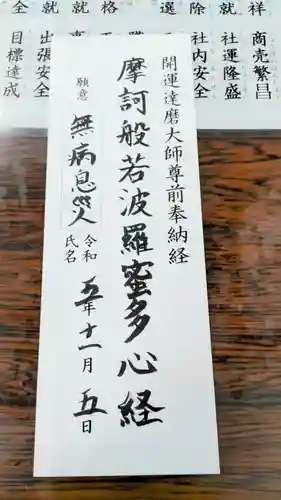 祥 商売繁昌
就 社運隆盛
除 社内安全
選
格
就
就 出張安全
全 目標達成
開運達磨大師尊前奉納経
摩訶般若波羅蜜多心経
願意 無病息災
令和 五年十一月五日
氏名